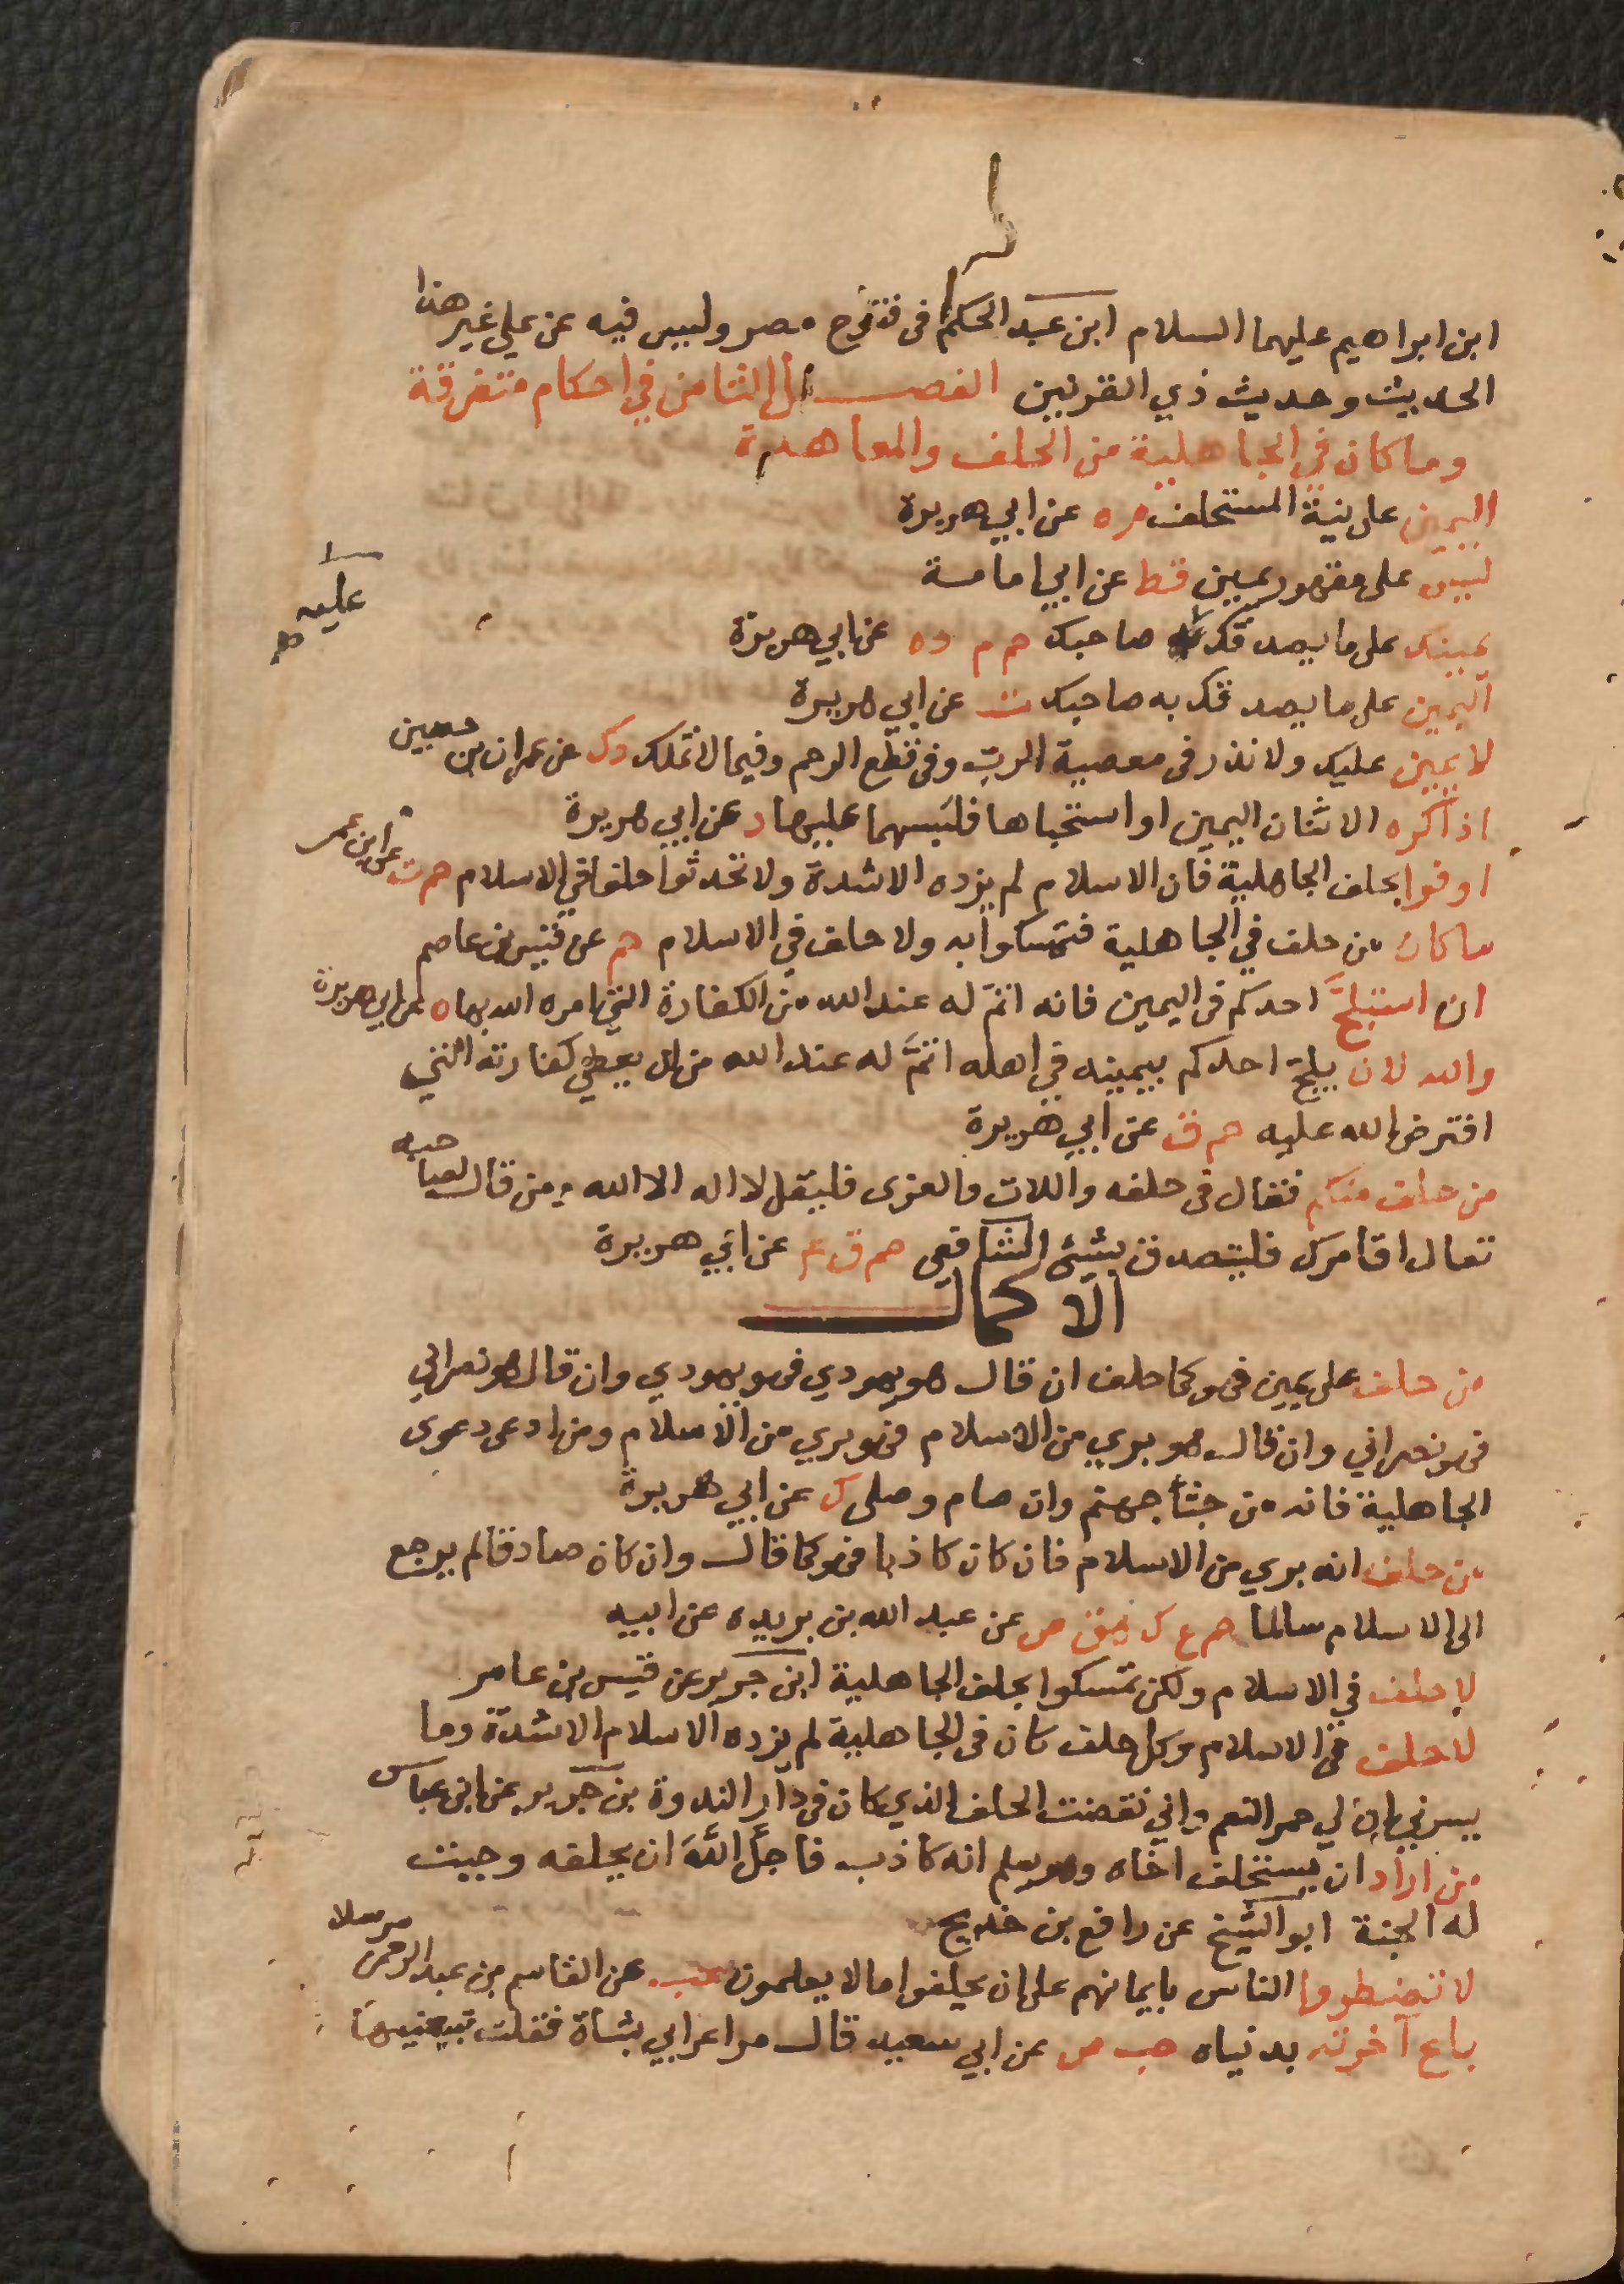 ابن ابراهيم عليهما السلام ابن عبد الحكم فى فتوح مصر وليس فيه عن علي غير هذا
الحديث وحديث ذي القرنين الفصل الثامن في احكام متفرقة
وما كان في الجاهلية من الحلف والمعاهدة
اليمين على نية المستحلف م ه عن ابي هريرة
ليس على مقهور يمين قط عن ابي امامة
يمينك على ما يصدقك صاحبك حم م د ه عن ابي هريرة
عليه
اليمين على ما يصدقك به صاحبك ت عن ابي هريرة
لا يمين عليك ولا نذر فى معصية الرب وفى قطع الرحم وفيما لا تملك د ك عن عمران بن حصين
اذا كره الاثنان اليمين او استحباها فليسهما عليها د عن ابي هريرة
اوفوا بحلف الجاهلية فان الاسلام لم يزده الا شدة ولا تحدثوا حلفا في الاسلام حم ت عن ابن عمر
ما كان من حلف في الجاهلية فتمسكوا به ولا حلف في الاسلام حم عن قيس بن عاصم
ان استلج احدكم فى اليمين فانه اثم له عند الله من الكفارة التي امره الله بها ه عن ابي هريرة
والله لان يلج احدكم بيمينه في اهله اثم له عند الله من ان يعطي كفارته التي
افترض الله عليه حم ق عن ابي هريرة
من حلف منكم فقال فى حلفه واللات والعزى فليقل لا اله الا الله ومن قال لصاحبه
تعال اقامرك فليتصدق بشيئ الشافعى حم ق ع عن ابي هريرة
الاكمال
من حلف على يمين فهو كما حلف ان قال هو يهودي فهو يهودي وان قال هو نصراني
فهو نصراني وان قال هو بري من الاسلام فهو بري من الاسلام ومن ادعى دعوى
الجاهلية فانه من جثا جهنم وان صام وصلى ك عن ابي هريرة
من حلف انه بري من الاسلام فان كان كاذبا فهو كما قال وان كان صادقا لم يرجع
الى الاسلام سالما حم ع ك هق ص عن عبد الله بن بريده عن ابيه
لا حلف في الاسلام ولكن تمسكوا بحلف الجاهلية ابن جرير عن قيس بن عامر
لا حلف فى الاسلام وكل حلف كان فى الجاهلية لم يزده الاسلام الا شدة وما
يسرني ان لي حمر النعم واني نقضت الحلف الذي كان فى دار الندوة بن جرير عن ابن عباس
من اراد ان يستحلف اخاه وهو يعلم انه كاذب فاجل الله ان يحلفه وجبت
له الجنة ابو الشيخ عن رافع بن خديج
لا تضطروا الناس بايمانهم على ان يحلفوا ما لا يعلمون عب عن القاسم بن عبد الرحمن مرسلا
باع آخرته بدنياه حب ص عن ابي سعيد قال مر اعرابي بشاة فقلت تبيعنيها